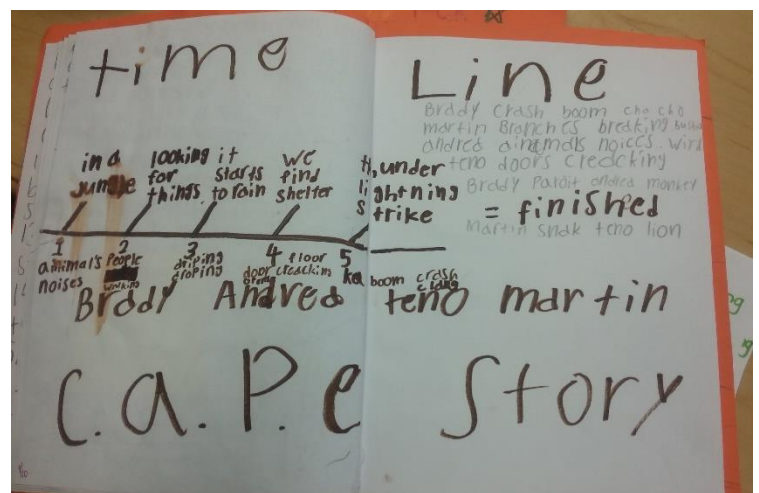 time Line
Brddy Crash boom cho cho
martin Branches breaking
andred ainemals noices wird
teno doors creacking
Brddy Pardit andred monkey
= finished
Martin Snak teno lion
in a jungle
looking for things
it starts to rain
we find shelter
thunder lightning strike
1 2 3 4 5
animals noises
People walking
driping droping
door opening floor creackin
ka boom crash clang
Brddy Andred teno martin
C.a.P.e Story